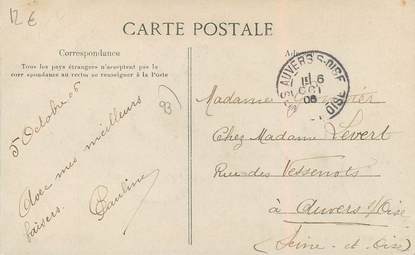 12 €
CARTE POSTALE
Correspondance
Tous les pays étrangers n'acceptent pas la
correspondance au recto se renseigner à la Poste
5 Octobre 06
Avec mes meilleurs
baisers.
Pauline
93
AUVERS-S-OISE
6
OCT
06
OISE
Madame
Chez Madame Levert
Rue des Vessenots
à Auvers s/Oise
(Seine-et-Oise)